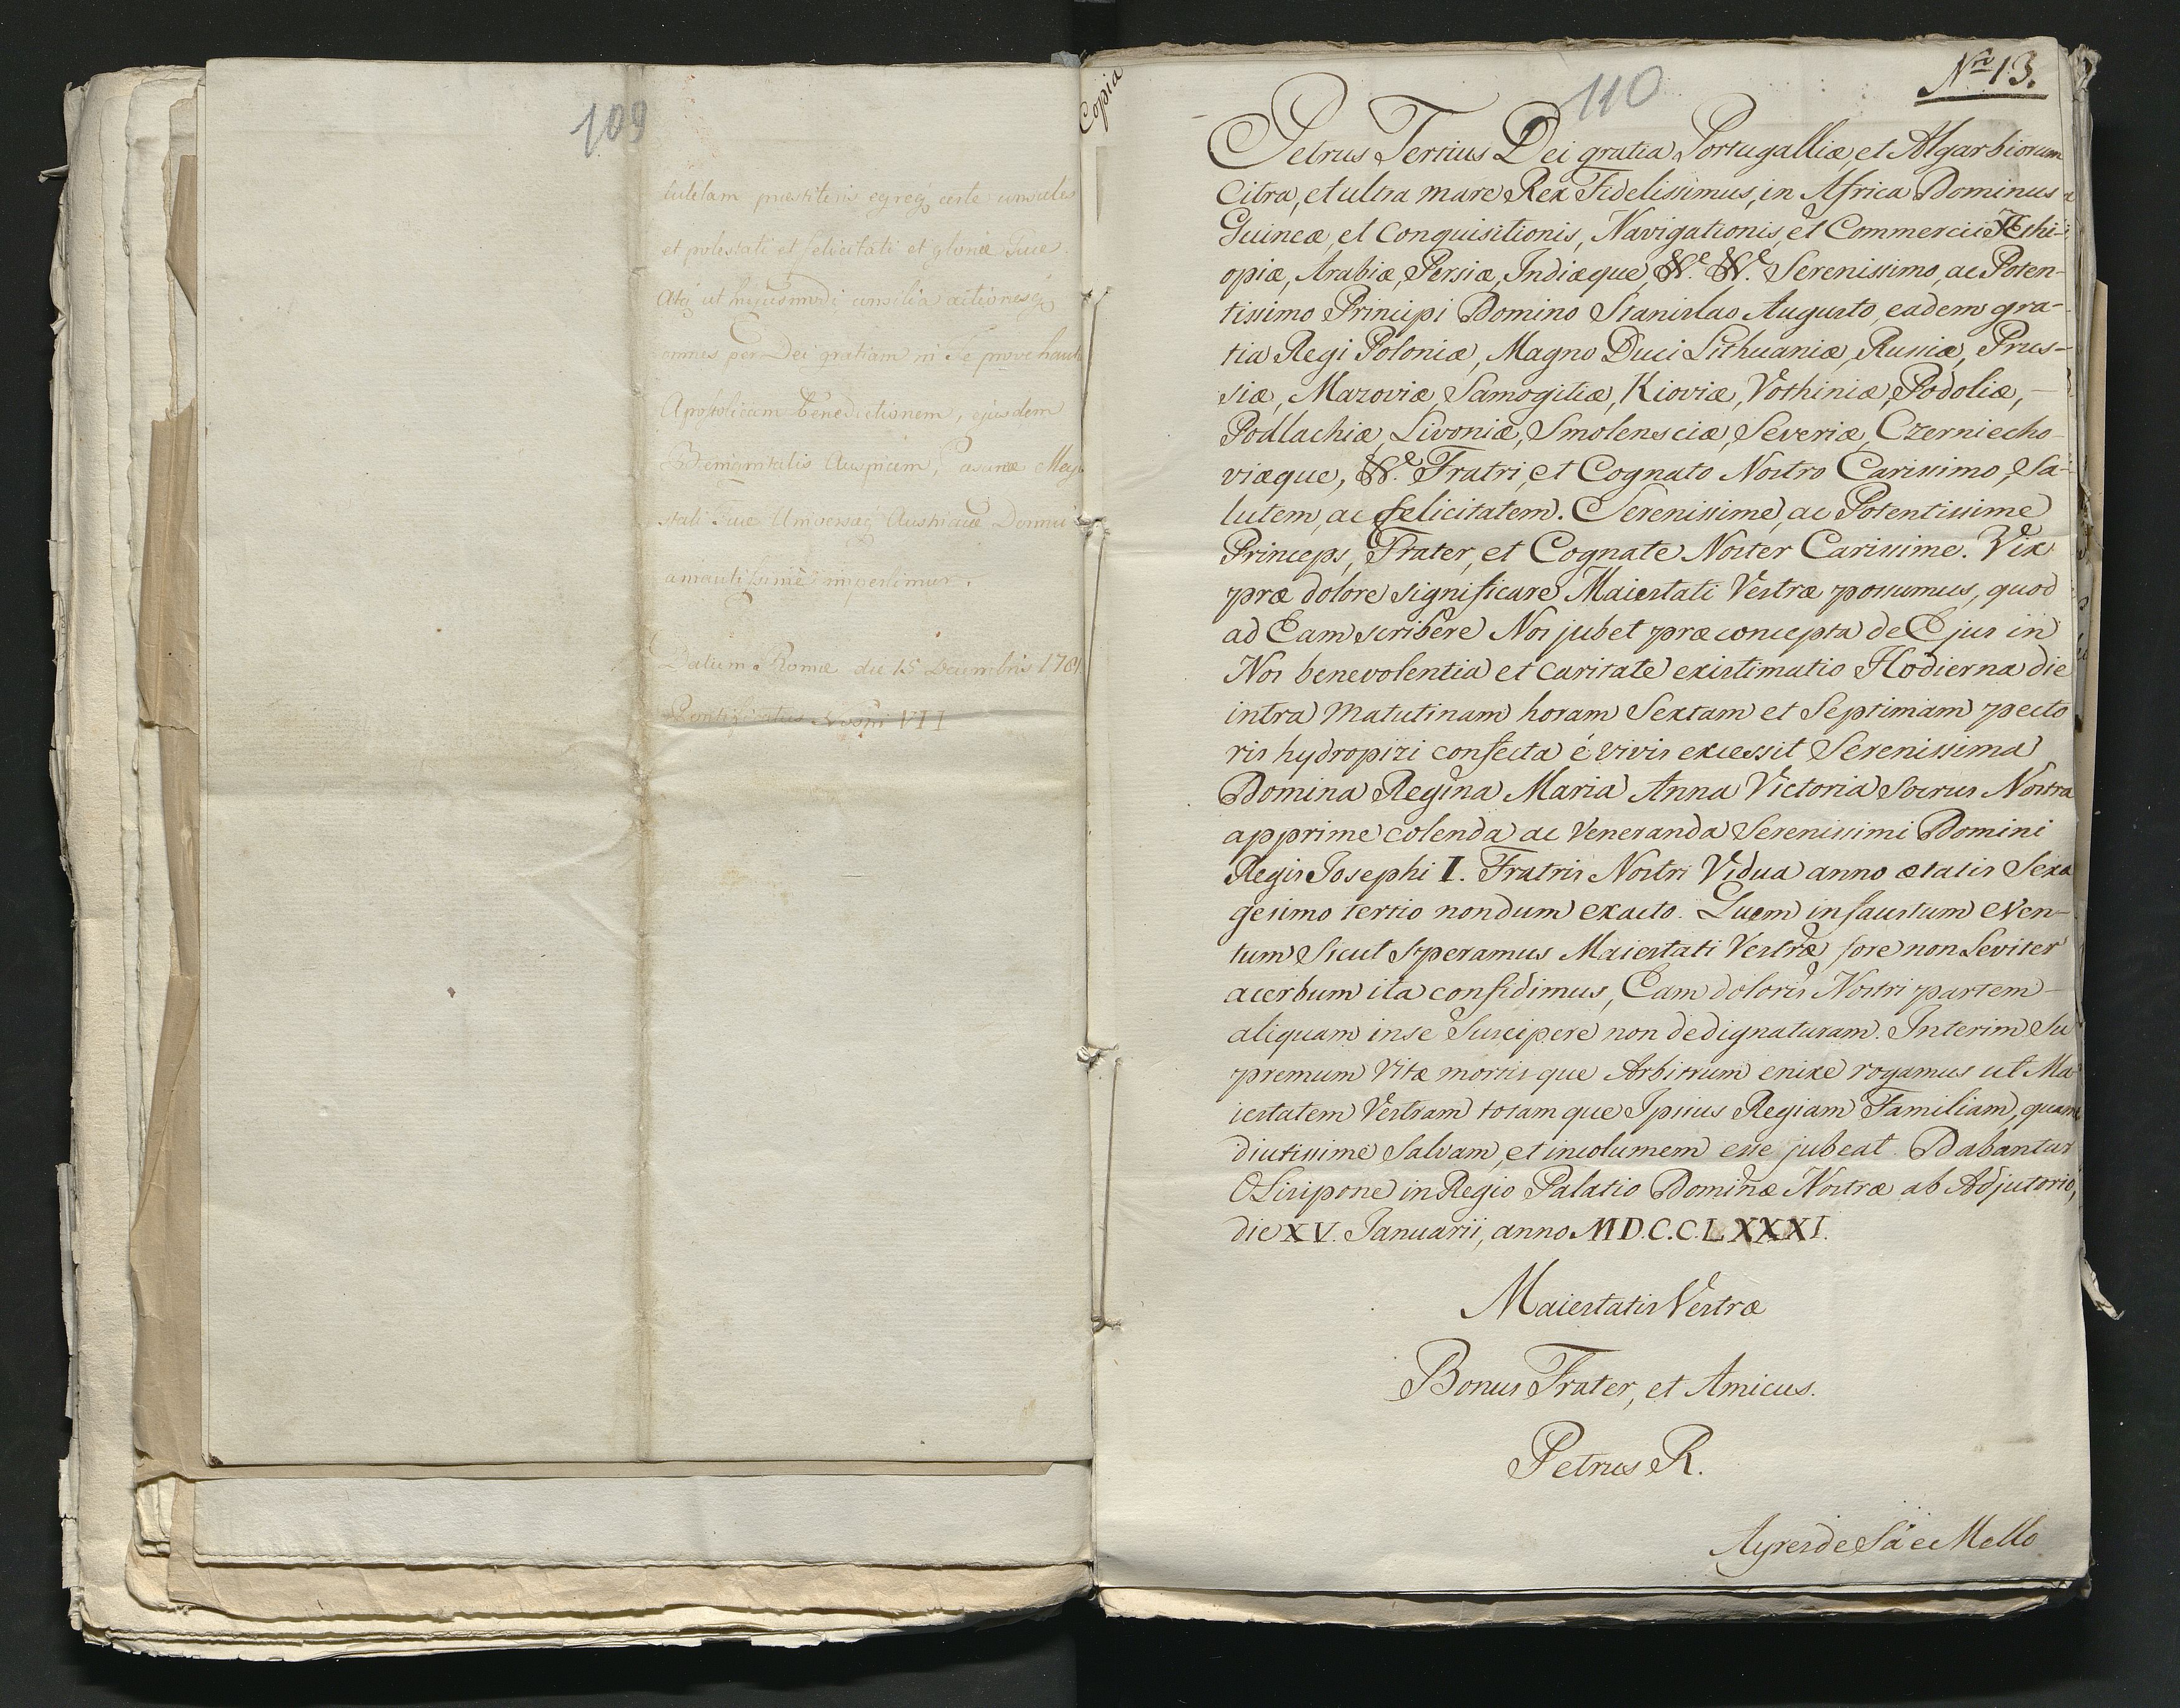 109
tutelam præstiteris egregie certe consules
et potestati et felicitati et gloriæ Tuæ.
Atq ut hujusmodi consilia actionesq
omnes per Dei gratiam in Te
Apostolicam Benedictionem, ejusdem
Benignitatis Auspicem, Cæsareæ Maje
stati Tuæ Universæq Austriacæ Domui
amantissime impertimur.
Datum Romæ die 15 Decembris 1781
Pontificatus Nostri VII
Copia
110
Nro 13.
Petrus Tertius Dei gratia Portugalliæ et Algarbiorum
Citra, et ultra mare Rex Fidelissimus, in Africa Dominus
Guineæ, et Conquisitionis, Navigationis, et Commercii Æthi-
opiæ, Arabiæ, Persiæ, Indiæque, &c. &c. Serenissimo, ac Poten-
tissimo Principi Domino Stanislao Augusto, eadem gra-
tia Regi Poloniæ, Magno Duci Lithuaniæ, Russiæ, Prus-
siæ, Mazoviæ, Samogitiæ, Kioviæ, Vothiniæ, Podoliæ, -
Podlachiæ, Livoniæ, Smolensciæ, Severiæ, Czerniecho-
viæque, &c. Fratri, et Cognato Nostro Carissimo, Sa-
lutem, ac felicitatem. Serenissime, ac Potentissime
Princeps, Frater, et Cognate Noster Carissime. Vix
præ dolore significare Maiestati Vestræ possumus, quod
ad Eam scribere Nos jubet præconcepta de Ejus in
Nos benevolentia et caritate existimatio Hodierna die
intra matutinam horam Sextam et Septimam pecto
ris hydropizi confecta é vivis excessit Serenissima
Domina Regina Maria Anna Victoria Socrus Nostra
apprime colenda ac Veneranda Serenissimi Domini
Regis Josephi I. Fratris Nostri Vidua anno ætatis Sexa
gesimo tertio nondum exacto. Quem infaustum even-
tum Sicut Speramus Maiestati Vestræ fore non Leviter
acerbum ita confidimus, Eam doloris Nostri partem -
aliquam in se Suscipere non dedignaturam. Interim Su
premum Vitæ mortis que Arbitrum enixe rogamus ut Ma
iestatem Vestram totam que Ipsius Regiam Familiam, quam
diutissime Salvam, et incolumem esse jubeat. Dabantur
Olisipone in Regio Palatio Dominæ Nostræ ab Adjutorio,
die XV. Januarii, anno MD.C.C.LXXXI.
Maiestatis Vestræ
Bonus Frater, et Amicus.
Petrus R.
Ayres de Sá e Mello